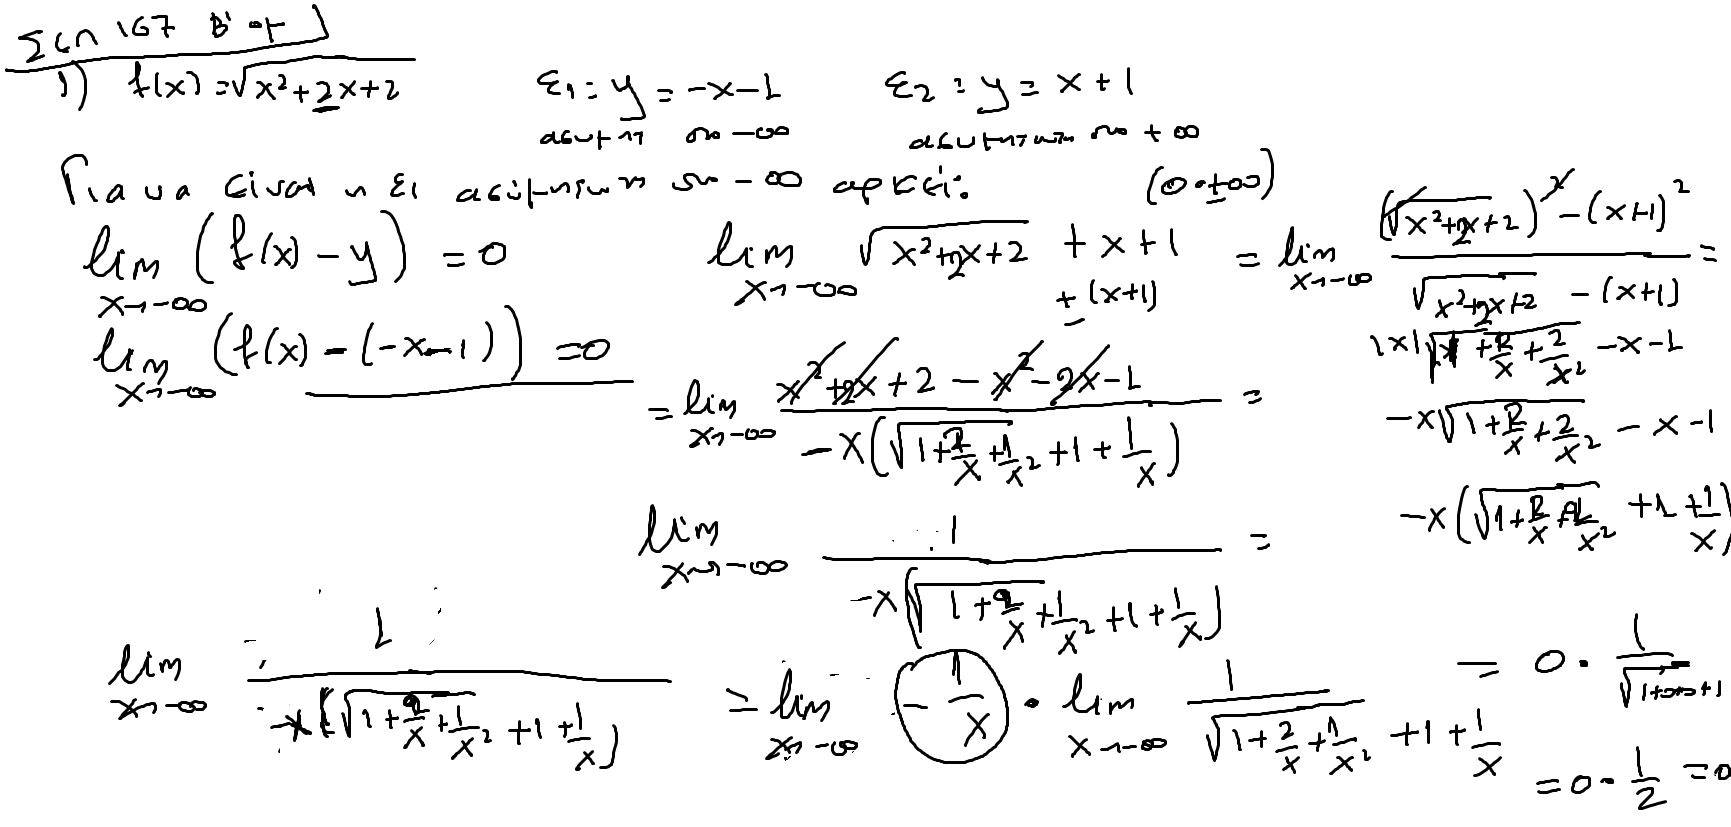 Σελ 167 Β' ομ
1) f(x) = √(x²+2x+2)    ε₁: y = -x-1    ε₂: y = x+1
ασυμπτ στο -∞    ασυμπτωτη στο +∞
Για να είναι η ε₁ ασύμπτωτη στο -∞ αρκεί:    (0·±∞)
lim x→-∞ (f(x) - y) = 0    lim x→-∞ √(x²+2x+2) + x+1 = lim x→-∞ ((√(x²+2x+2))² - (x+1)²)/(√(x²+2x+2) - (x+1)) =
+(x+1)
lim x→-∞ (f(x) - (-x-1)) = 0    |x|√(1+2/x+2/x²) -x-1
= lim x→-∞ (x²+2x+2-x²-2x-1)/(-x(√(1+2/x+1/x²)+1+1/x)) =    -x√(1+2/x+2/x²) -x-1
-x(√(1+2/x+2/x²)+1+1/x)
lim x→-∞ 1/(-x(√(1+2/x+1/x²)+1+1/x)) =
lim x→-∞ 1/(-x(√(1+2/x+1/x²)+1+1/x)) = lim x→-∞ (-1/x) · lim x→-∞ 1/(√(1+2/x+1/x²)+1+1/x) = 0 · 1/(√(1+0+0)+1)
= 0 · 1/2 = 0